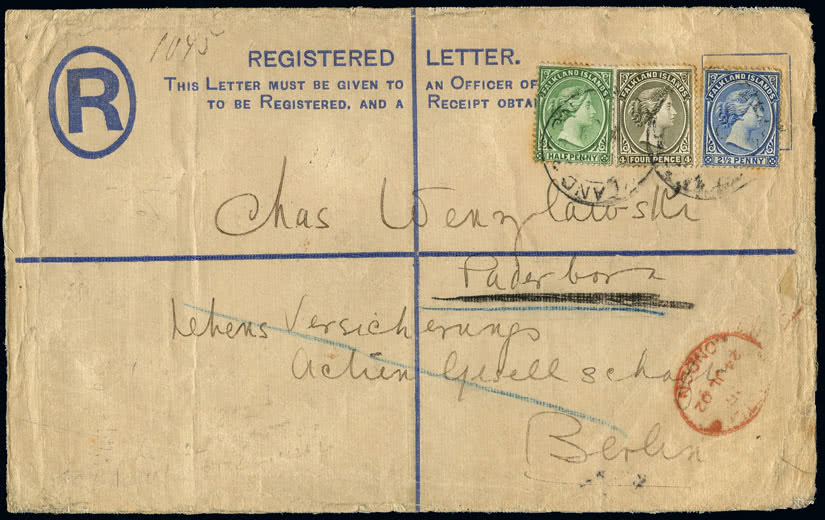 1045
REGISTERED LETTER.
THIS LETTER MUST BE GIVEN TO AN OFFICER OF
TO BE REGISTERED, AND A RECEIPT OBTAI
R
FALKLAND ISLANDS
HALF PENNY
FALKLAND ISLANDS
4 FOUR PENCE 4
FALKLAND ISLANDS
2½ PENNY
Chas Wenzlawski
Paderborn
Lebens Versicherungs
Actien Gesellschaft
Berlin
LONDON
JL 02